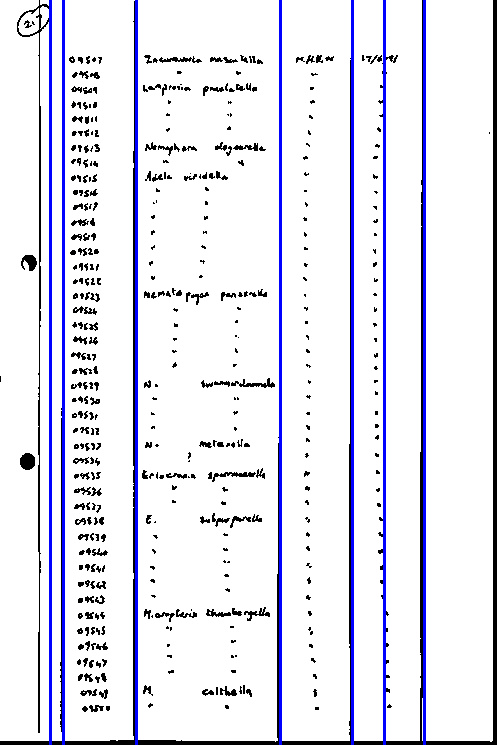 217
09507 mansuetella M.R.R.W 17/6/81
09508 " " " "
09509 Lampronia praelatella " "
09510 " " " "
09511 " " " "
09512 " " " "
09513 Nemophora degeerella " "
09514 " " " "
09515 Adela viridella " "
09516 " " " "
09517 " " " "
09518 " " " "
09519 " " " "
09520 " " " "
09521 " " " "
09522 " " " "
09523 Nematopogon panzerella " "
09524 " " " "
09525 " " " "
09526 " " " "
09527 " " " "
09528 " " " "
09529 N. swammerdamella " "
09530 " " " "
09531 " " " "
09532 " " " "
09533 N. metaxella " "
09534 ? " "
09535 Eriocrania sparmannella " "
09536 " " " "
09537 " " " "
09538 E. subpurpurella " "
09539 " " " "
09540 " " " "
09541 " " " "
09542 " " " "
09543 " " " "
09544 Micropterix thunbergella " "
09545 " " " "
09546 " " " "
09547 " " " "
09548 " " " "
09549 M. calthella " "
09550 " " " "